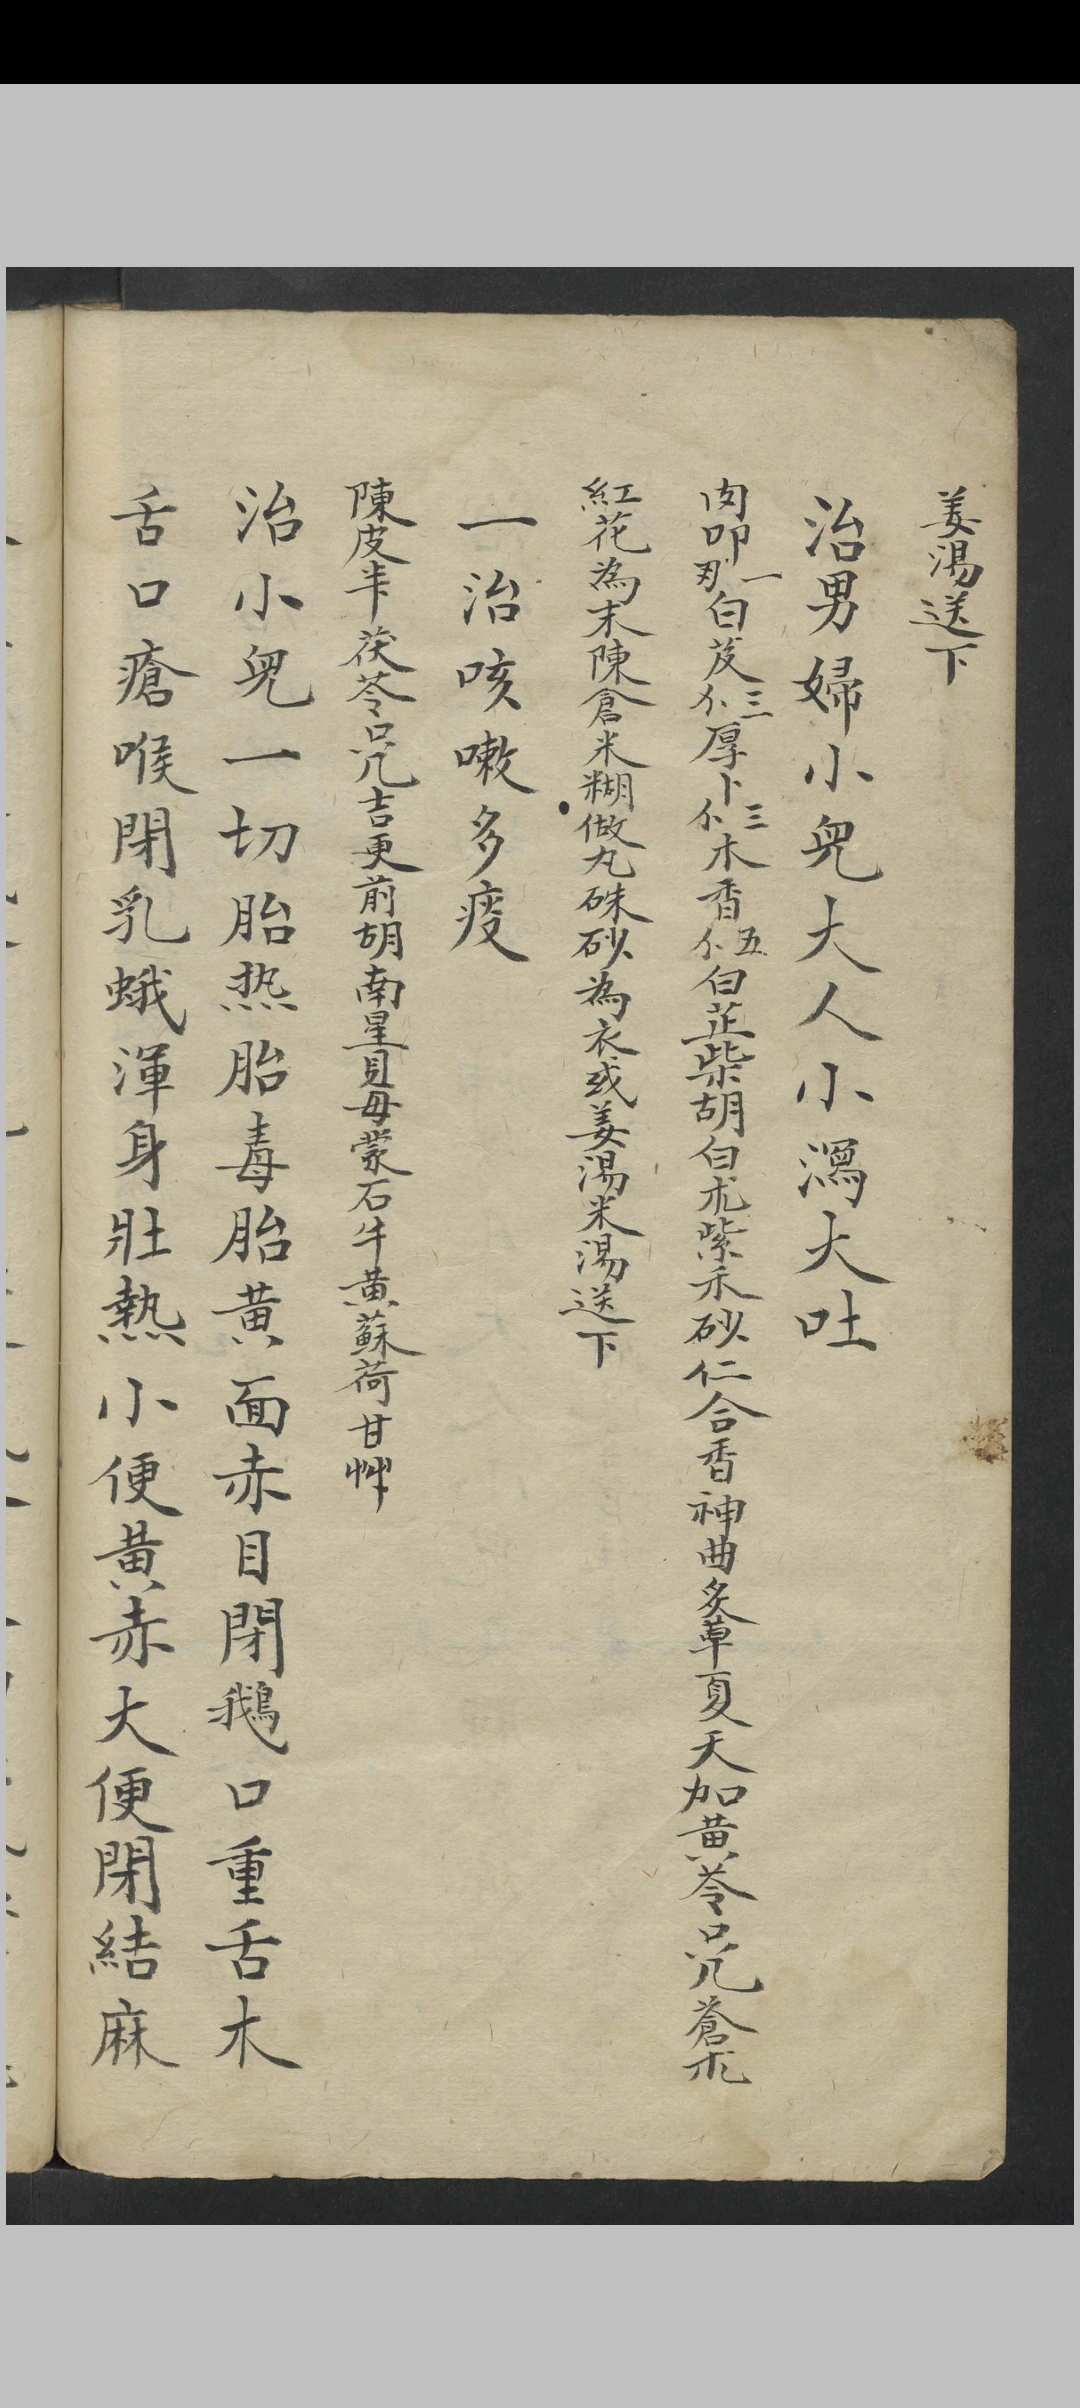 姜湯送下
治男婦小兒大人小瀉大吐
肉叩一白芨三厚卜三木香五白芷柴胡白朮紫禾砂仁合香神曲炙草夏天加黄苓咒蒼朮
紅花為末陳倉米糊做丸硃砂為衣或姜湯米湯送下
一治咳嗽多痰
陳皮半茯苓咒吉更前胡南星貝母蒙石牛黄蘇荷甘艸
治小兒一切胎热胎毒胎黄面赤目閉鵝口重舌木
舌口瘡喉閉乳蛾渾身壯熱小便黄赤大便閉結麻